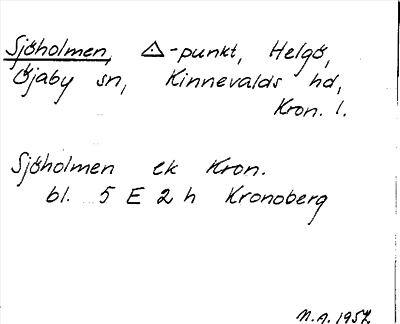 Sjöholmen, △-punkt, Helgö,
Öjaby sn, Kinnevalds hd,
Kron. l.
Sjöholmen ek Kron.
bl. 5 E 2 h Kronoberg
N.A. 1957